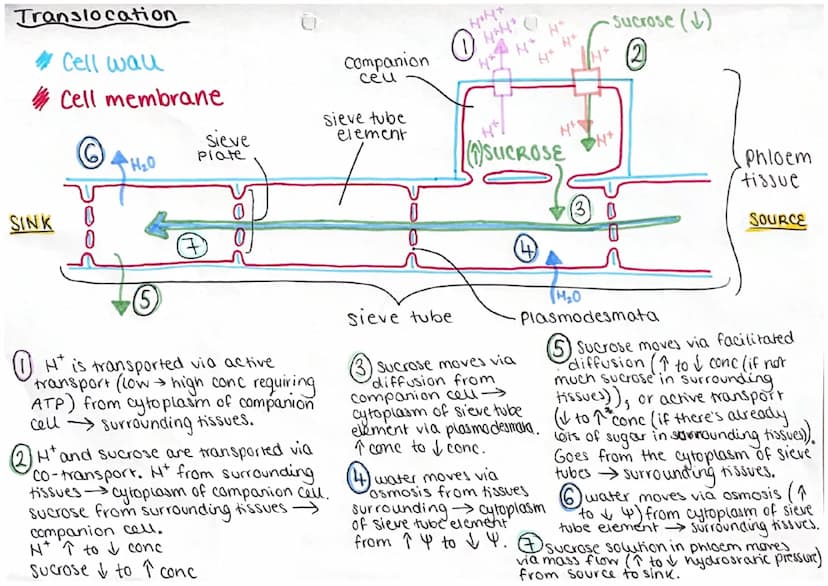 Translocation
Cell wall
Cell membrane
companion
cell
sieve tube
element
sieve
plate
1
H+ H+
H+ H+
H+ H+
H+
H+
H+
H+
H+
H+
H+
H+
sucrose (↓)
2
(↑) SUCROSE
phloem
tissue
6
H₂O
SINK
7
3
SOURCE
4
H₂O
5
sieve tube
plasmodesmata
1 H+ is transported via active
transport (low → high conc requiring
ATP) from cytoplasm of companion
cell → surrounding tissues.
2 H+ and sucrose are transported via
co-transport. H+ from surrounding
tissues → cytoplasm of companion cell.
sucrose from surrounding tissues →
companion cell.
H+ ↑ to ↓ conc
sucrose ↓ to ↑ conc
3 sucrose moves via
diffusion from
companion cell →
cytoplasm of sieve tube
element via plasmodesmata.
↑ conc to ↓ conc.
4 water moves via
osmosis from tissues
surrounding → cytoplasm
of sieve tube element
from ↑ Ψ to ↓ Ψ.
5 sucrose moves via facilitated
diffusion (↑ to ↓ conc (if not
much sucrose in surrounding
tissues)), or active transport
(↓ to ↑ conc (if there's already
lots of sugar in surrounding tissues).
Goes from the cytoplasm of sieve
tubes → surrounding tissues.
6 water moves via osmosis (↑
to ↓ Ψ) from cytoplasm of sieve
tube element → surrounding tissues.
7 sucrose solution in phloem moves
via mass flow (↑ to ↓ hydrostatic pressure)
from source to sink.